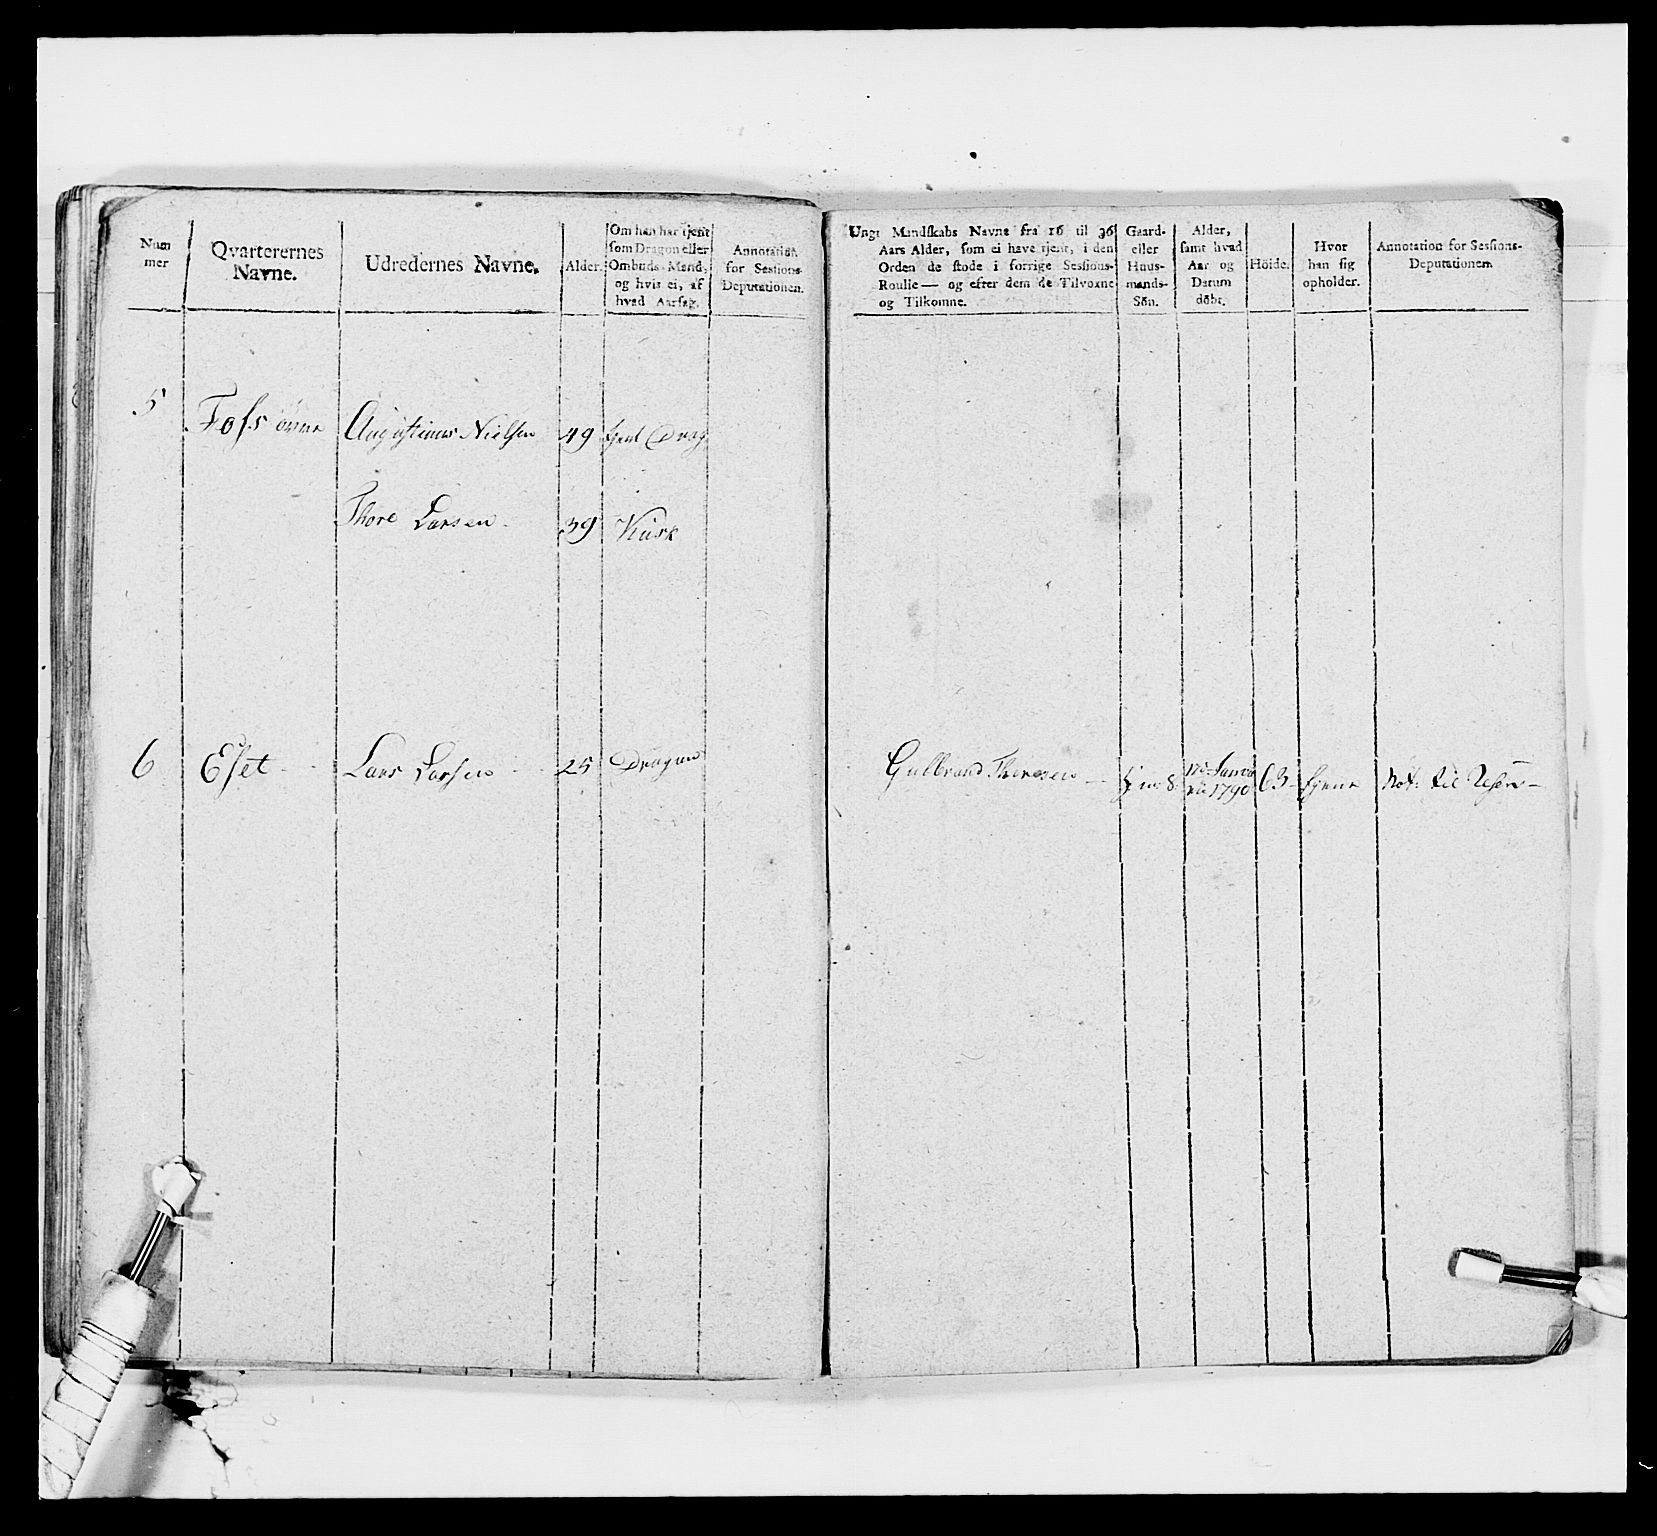 Num
mer
Qvarterernes
Navne.
Udredernes Navne.
Alder.
Om han har tjent
som Dragon eller
Ombuds-Mand,
og hvis ei, af
hvad Aarsag.
Annotation
for Sessions-
Deputationen.
Ungt Mandskabs Navne fra 16 til 36
Aars Alder, som ei have tjent, i den
Orden de stode i forrige Sessions-
Roulle — og efter dem de Tilvoxne
og Tilkomne.
Gaard-
eller
Huus-
mands-
Sön.
Alder,
samt hvad
Aar og
Datum
döbt.
Höide.
Hvor
han sig
opholder.
Annotation for Sessions-
Deputationen.
5 Foss øvre Augustinus Nielsen 49 tjent Drag
Thore Larsen 39 Kusk
6 Eset Lars Larsen 25 Dragon
Gulbrand Thoresen 1790 63 hjeme Not. til